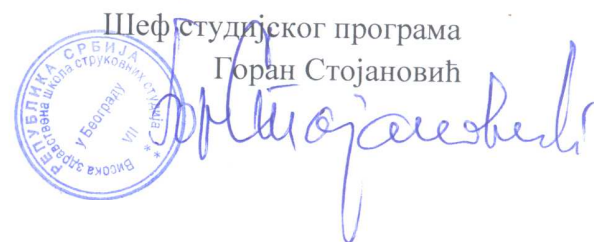 Шеф студијског програма
Горан Стојановић
РЕПУБЛИКА СРБИЈА
Висока здравствена школа струковних студија
у Београду
VII